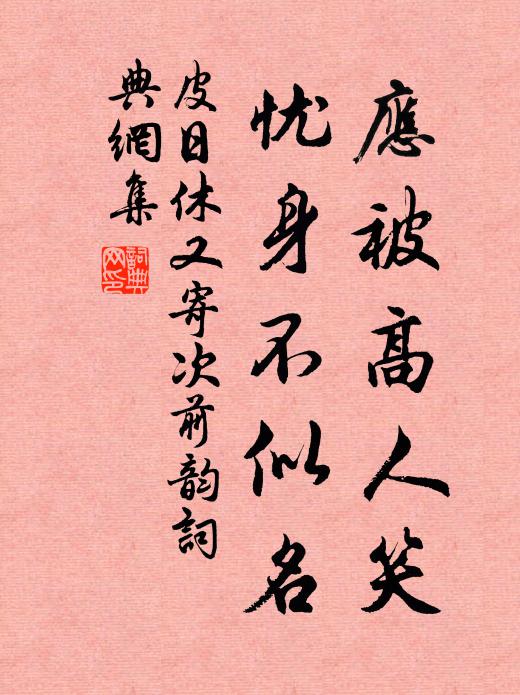 應被高人笑
忧身不似名
皮日休又寄次前韵詞
典網集
詞典
网印